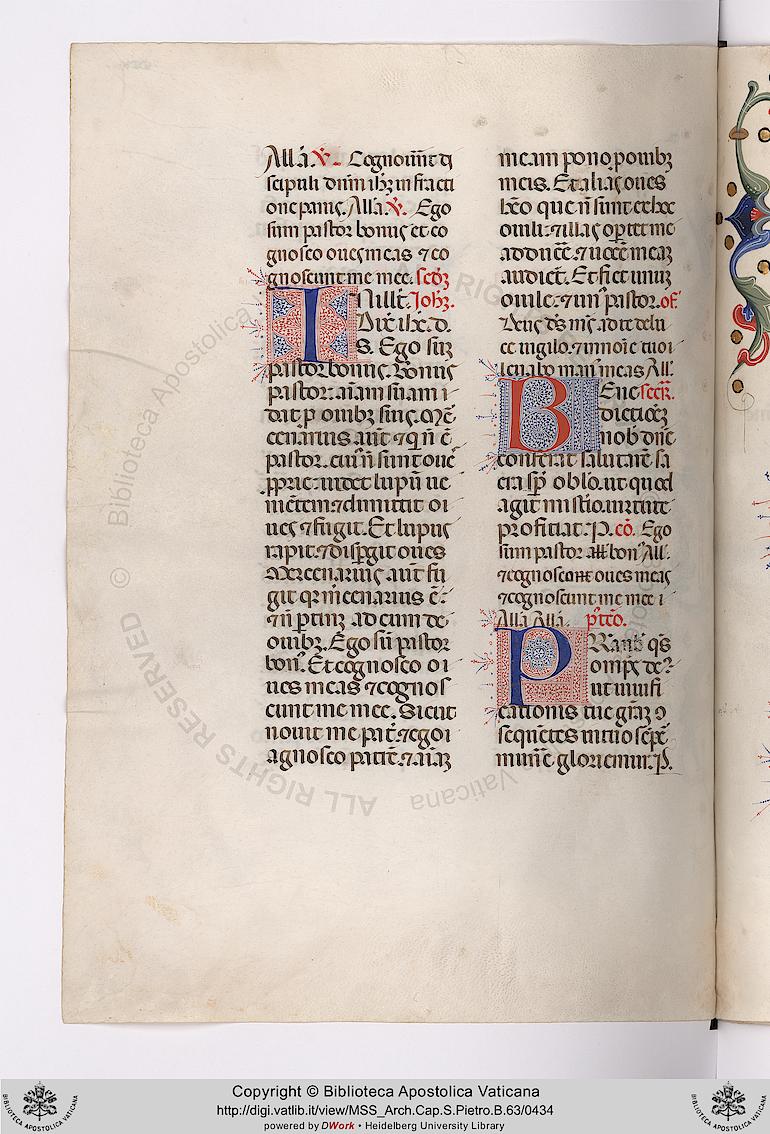 Alla. V. Cognoverūt di
scipuli dnm ihm in fracti
one panis. Alla. V. Ego
sum pastor bonus et co
gnosco oves meas ⁊ co
gnoscunt me mee. secdȝ
IN illt. Johȝ.
Dix ihc. d.
S. Ego suȝ
pastor bonus. Bonus
pastor. aīam suam
dat p ovibȝ suis.
cenarius aut ⁊ q n ē
pastor. cui n sunt ove
pprie. videt lupū ve
niētem ⁊ dimittit o
ves ⁊ fugit. Et lupus
rapit. ⁊ dispgit oves
Mercenarius aut fu
git qr mcenarius ē.
⁊ n ptinȝ ad eum de
ovibȝ. Ego sū pastor
bon. Et cognosco o
ves meas ⁊ cognos
cunt me mee. Sicut
novit me pat ⁊ ego
agnosco patrē ⁊ aīaȝ
meam pono p ovibȝ
meis. Et alias oves
heo que n sunt ex hoc
ovili. ⁊ illas optet me
adducē. ⁊ vocē meaȝ
audiet. Et fiet unuȝ
ovile. ⁊ un pastor. of
Deus ds ms ad te de lu
ce vigilo. ⁊ in noīe tuo
levabo man meas All.
BEne secr.
dictioȝ
nob dnē
conferat salutarē sa
cra sp oblo. ut quod
agit misterio. virtute
proficiat. P. cō. Ego
sum pastor bon All.
⁊ cognosco oves meas
⁊ cognoscunt me mee
Alla Alla. ptcō.
PRaest nob qs
omps de
ut vivifi
cationis tue grāȝ
sequetes in tuo sēpē
munē gloriemur. P.
Copyright © Biblioteca Apostolica Vaticana
http://digi.vatlib.it/view/MSS_Arch.Cap.S.Pietro.B.63/0434
powered by DWork • Heidelberg University Library
BIBLIOTECA APOSTOLICA VATICANA
BIBLIOTECA APOSTOLICA VATICANA
© Biblioteca Apostolica Vaticana
ALL RIGHTS RESERVED